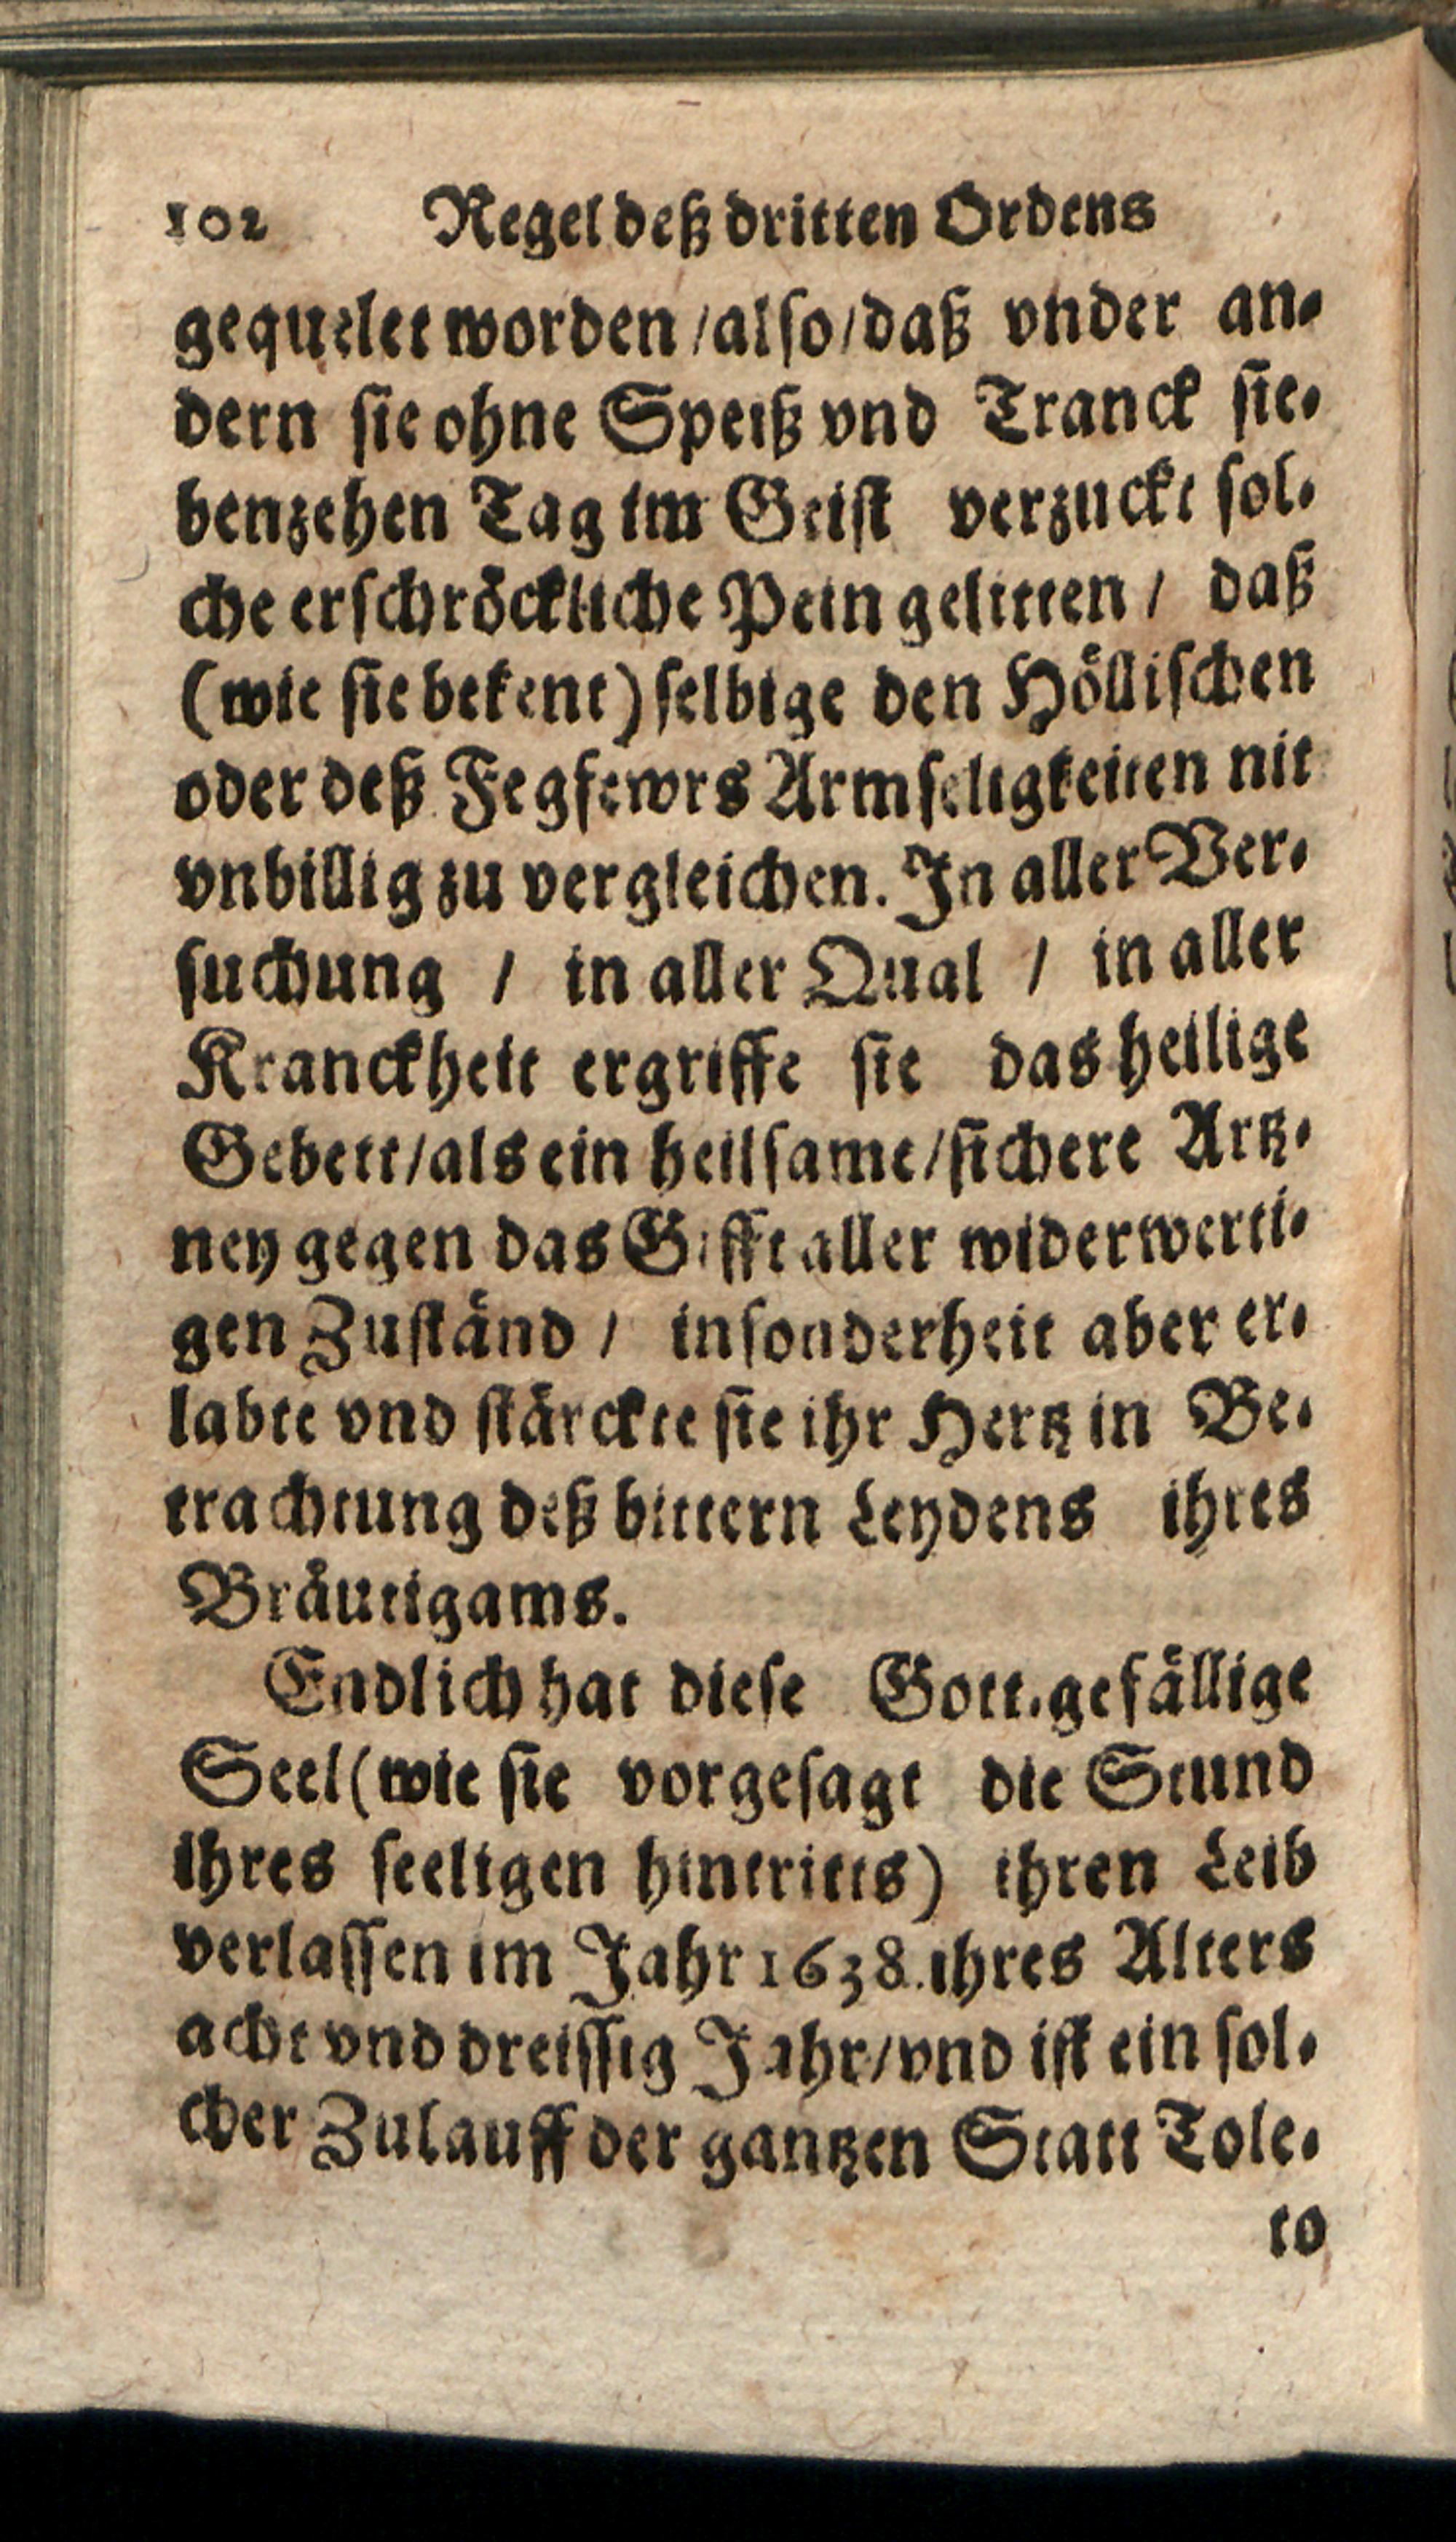 102 Regel deß dritten Ordens
gequelet worden / also / daß vnder an-
dern sie ohne Speiß vnd Tranck sie-
benzehen Tag im Geist verzuckt sol-
che erschröckliche Pein gelitten / daß
(wie sie bekent) selbige den Höllischen
oder deß Fegfewrs Armseligkeiten nit
vnbillig zu vergleichen. In aller Ver-
suchung / in aller Qual / in aller
Kranckheit ergriffe sie das heilige
Gebett / als ein heilsame / sichere Artz-
ney gegen das Gifft aller widerwerti-
gen Zuständ / insonderheit aber er-
labte vnd stärckte sie ihr Hertz in Be-
trachtung deß bittern Leydens ihres
Bräutigams.
Endlich hat diese Gott-gefällige
Seel (wie sie vorgesagt die Stund
ihres seeligen hintritts) ihren Leib
verlassen im Jahr 1638. ihres Alters
acht vnd dreissig Jahr / vnd ist ein sol-
cher Zulauff der gantzen Statt Tole-
to